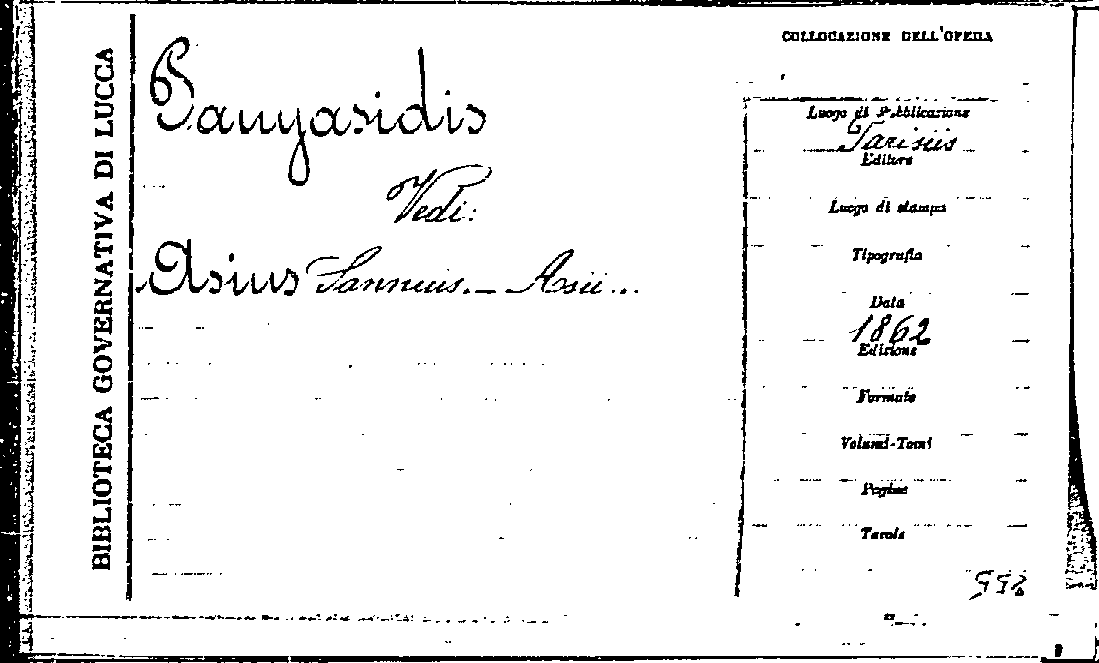 BIBLIOTECA GOVERNATIVA DI LUCCA
Panyasidis
Vedi:
Asius Samius. _ Asii...
COLLOCAZIONE DELL'OPERA
Luogo di Pubblicazione
Parisiis
Editore
Luogo di stampa
Tipografia
Data
1862
Edizione
Formato
Volumi-Tomi
Pagine
Tavole